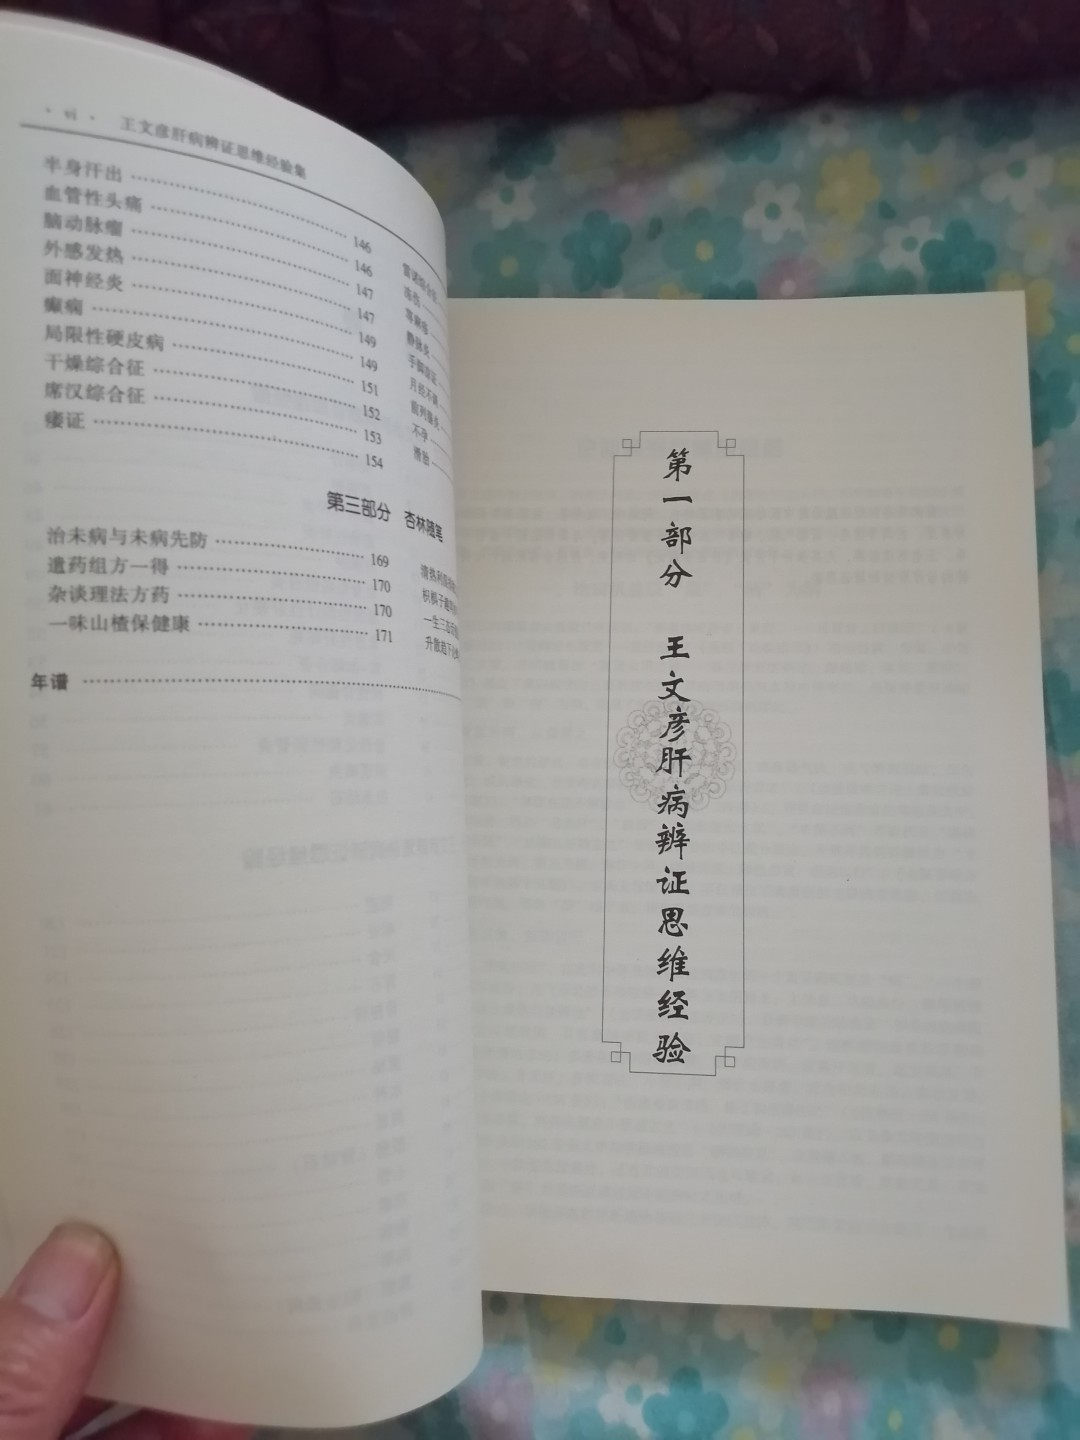 · vi · 王文彦肝病辨证思维经验集
半身汗出 146
血管性头痛 146
脑动脉瘤 147
外感发热 147
面神经炎 149
癫痫 149
局限性硬皮病 151
干燥综合征 152
席汉综合征 153
痿证 154
雷诺综合征
冻伤
荨麻疹
静脉炎
月经不调
前列腺炎
不孕
滑胎
第三部分 杏林随笔
治未病与未病先防 169
遣药组方一得 170
杂谈理法方药 170
一味山楂保健康 171
年谱
第一部分 王文彦肝病辨证思维经验